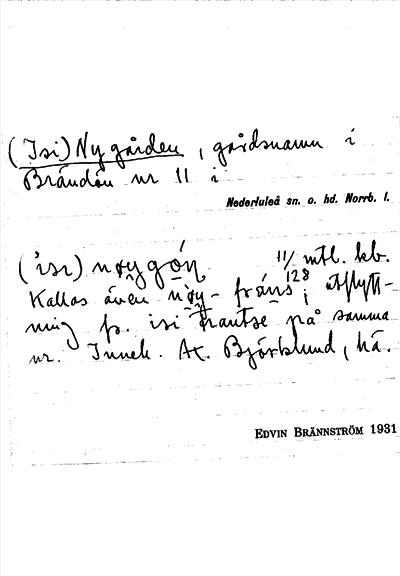 (Isi) Nygården, gårdsnamn i
Brändön nr 11 i
Nederluleå sn. o. hd. Norrb. l.
('isi) nøygọ́ṇ 11/128 mtl. kb.
Kallas även nøy-fráns i utflytt-
ning f. isi frantse på samma
nr. Inneh. Ax. Björklund, hä.
EDVIN BRÄNNSTRÖM 1931